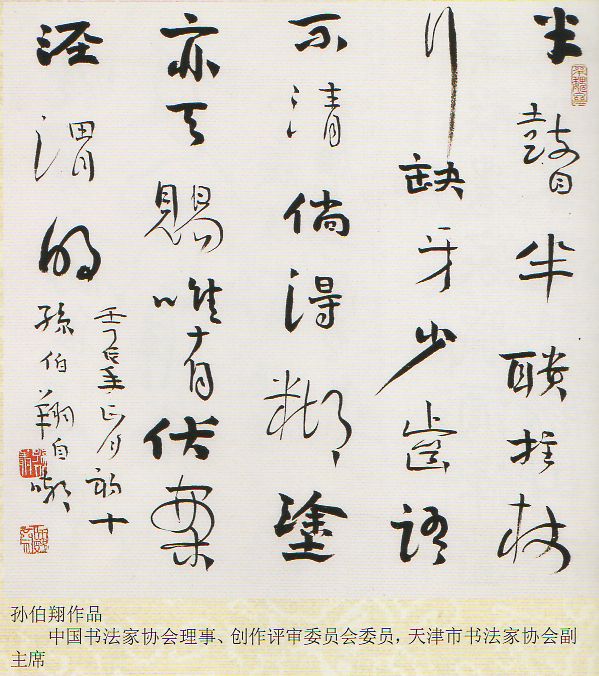 半瞽半聵拄杖
行缺牙少齒語
不清倘得糊塗
亦天賜唯有伏案
涇渭明
壬辰年正月初十
孫伯翔自嘲
孙伯翔作品
中国书法家协会理事、创作评审委员会委员,天津市书法家协会副
主席